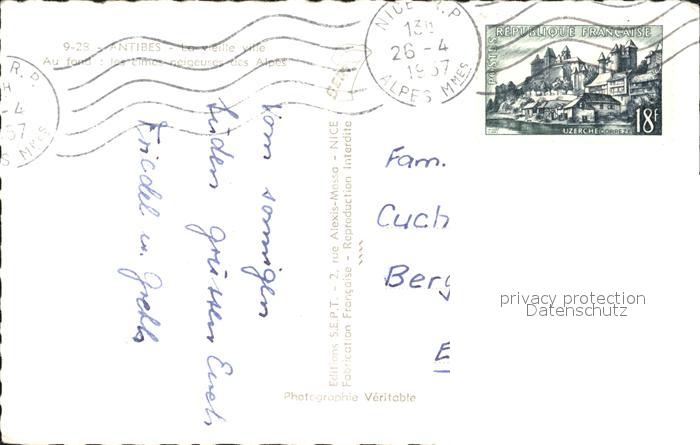 9-28 - ANTIBES - La vieille ville
Au fond : les cimes neigeuses des Alpes
NICE R.P.
13H
26-4
1957
ALPES MMES
R.P.
4
57
MMES
RÉPUBLIQUE FRANÇAISE
POSTES
UZERCHE CORRÈZE
18F
Vom sonnigen
Süden grüssen Euch
Friedel u.
Editions S.E.P.T. - 2, rue Alexis-Mossa - NICE
Fabrication Française - Reproduction Interdite
Photographie Véritable
Fam.
Cuch
Berg
E
privacy protection
Datenschutz